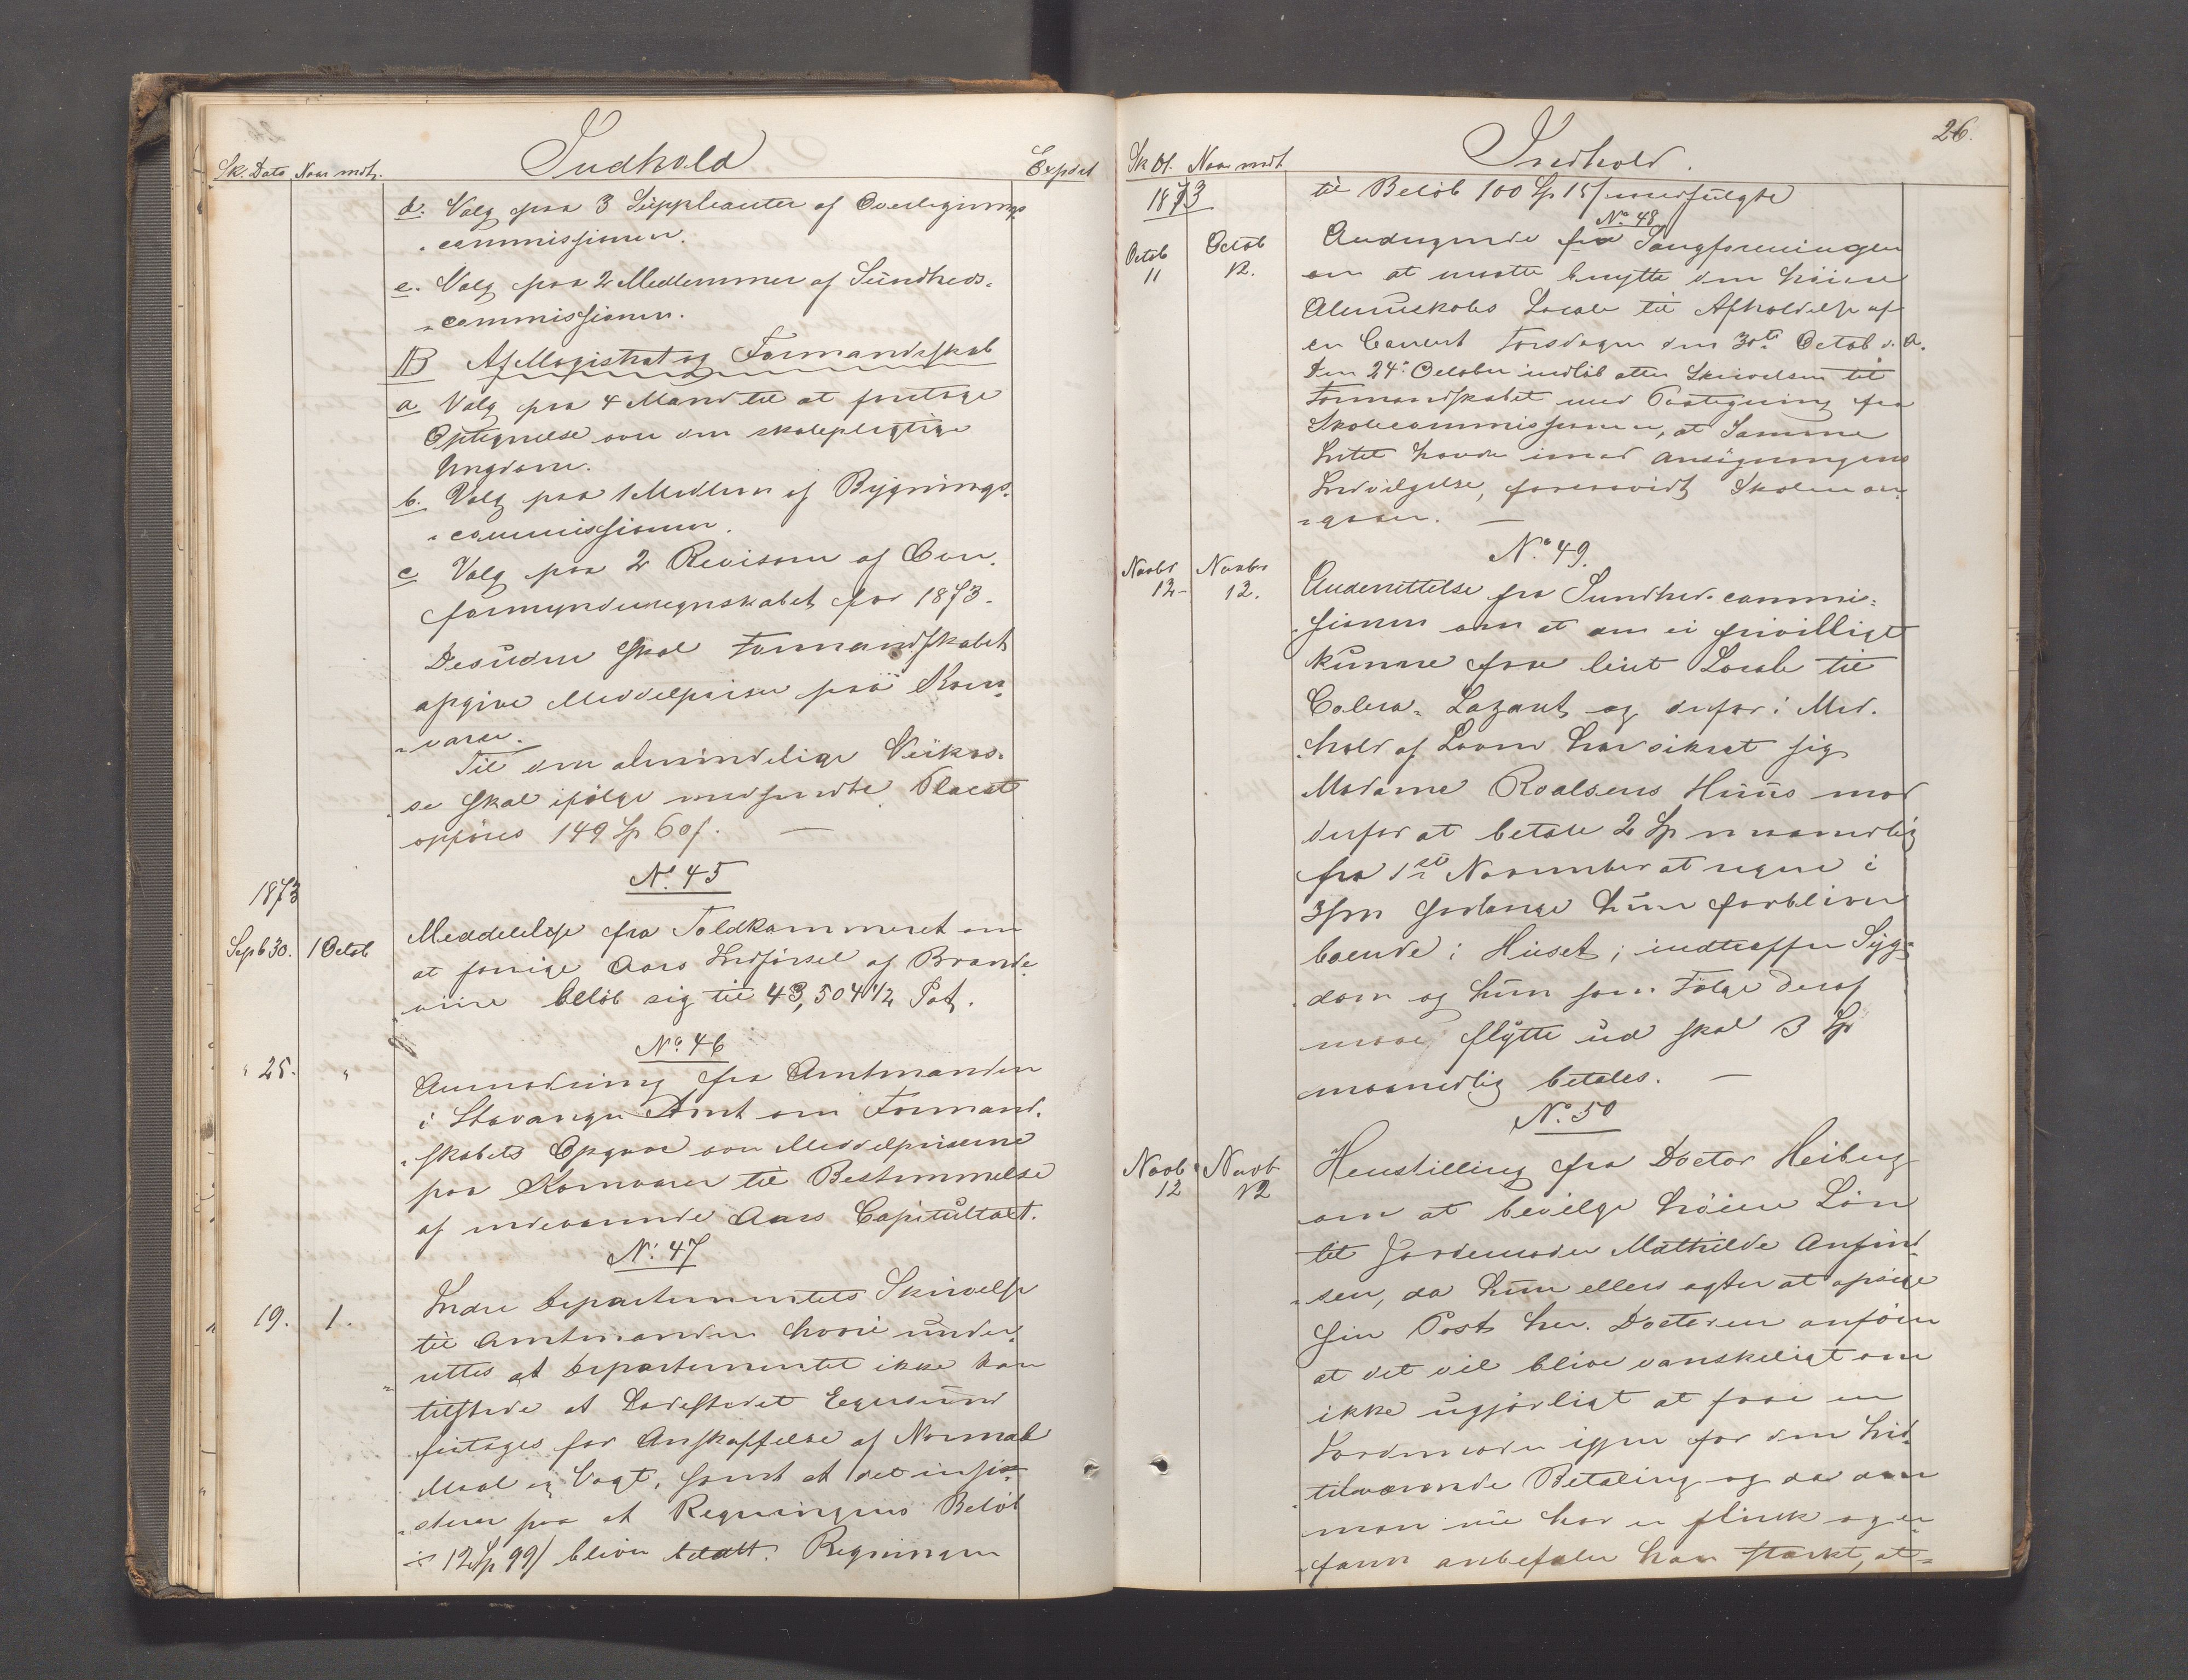 Sk. Dato Naar mdt. Indhold Expdet
d. Valg paa 3 Suppleanter af Overlignings
commissionen.
e. Valg paa 2 Medlemmer af Sundheds-
commissionen.
B Af Magistrat og Formandskab
a Valg paa 4 Mænd til at foretage
Optegnelse over den skolepligtige
Ungdom.
b. Valg paa 1 Medlem af Bygnings-
commissionen.
c Valg paa 2 Revisorer af Over-
formynderregnskabet for 1873.
Desuden skal Formandskabet
opgive Middelpriser paa Korn-
varer.
Til den almindelige Veikas-
se skal ifølge medsendte Placat
opføres 149 Sp 60 s. —
1873
No. 45
Septb 30. 1 Octob
Meddelelse fra Toldkammeret om
at forrige Aars Indførsel af Brænde-
viin beløb sig til 43,504 1/2 Pot.
No. 46
" 25. "
Anmodning fra Amtmanden
i Stavanger Amt om Formand-
skabets Opgave over Middelpriserne
paa Kornvarer til Bestemmelse
af indeværende Aars Capitultaxt.
No. 47
19. 1.
Indre Departementets Skrivelse
til Amtmanden hvori under-
rettes at Departementet ikke kan
tilstede at Ladestedet Egersund
fritages for Anskaffelse af Normal
Maal og Vægt, samt at det insi-
sterer paa at Regningens Beløb
÷ 12 Sp 99 s bliver betalt. Regningen
Sk Dt. Naar mdt Indhold. 26.
1873
til Beløb 100 Sp 15 s medfulgte
No. 48
Octob 11 Octob 12.
Andragende fra Sangforeningen
om at maatte benytte den høiere
Almueskoles Locale til Afholdelse af
en Concert Torsdagen den 30te Octob d. A.
Den 24de October indløb atter Skrivelsen til
Formandskabet med Paategning fra
Skolecommissionen, at Samme
Intet havde imod Ansøgningens
Indvilgelse, forsaavidt Skolen an-
gaaer. —
No. 49.
Novbr 12- Novbr 12.
Underrettelse fra Sundhedscommi-
sionen om at den ei frivilligt
kunne faae leiet Locale til
Colera-Lazaret og derfor i Med-
hold af Loven har sikret sig
Madame Roalsens Huus mod
derfor at betale 2 Sp maanedlig
fra 1ste November at regne i
saalænge hun forbliver
boende i Huset; indtræffer Syg-
dom og hun som Følge deraf
maae flytte ud skal 3 Sp
maanedlig betales. —
No. 50
Novb 12 Novb 12
Henstilling fra Doctor Heiberg
om at bevilge høiere Løn
til Jordemoder Mathilde Anfind-
sen, da hun ellers agter at opsige
sin Post her. Doctoren anfører
at det vil blive vanskeligt om
ikke ugjørligt at faae en
Jordemoder igjen for den hid-
tilværende Betaling og da den
man nu har er flink og er-
faren anbefaler han stærkt, at